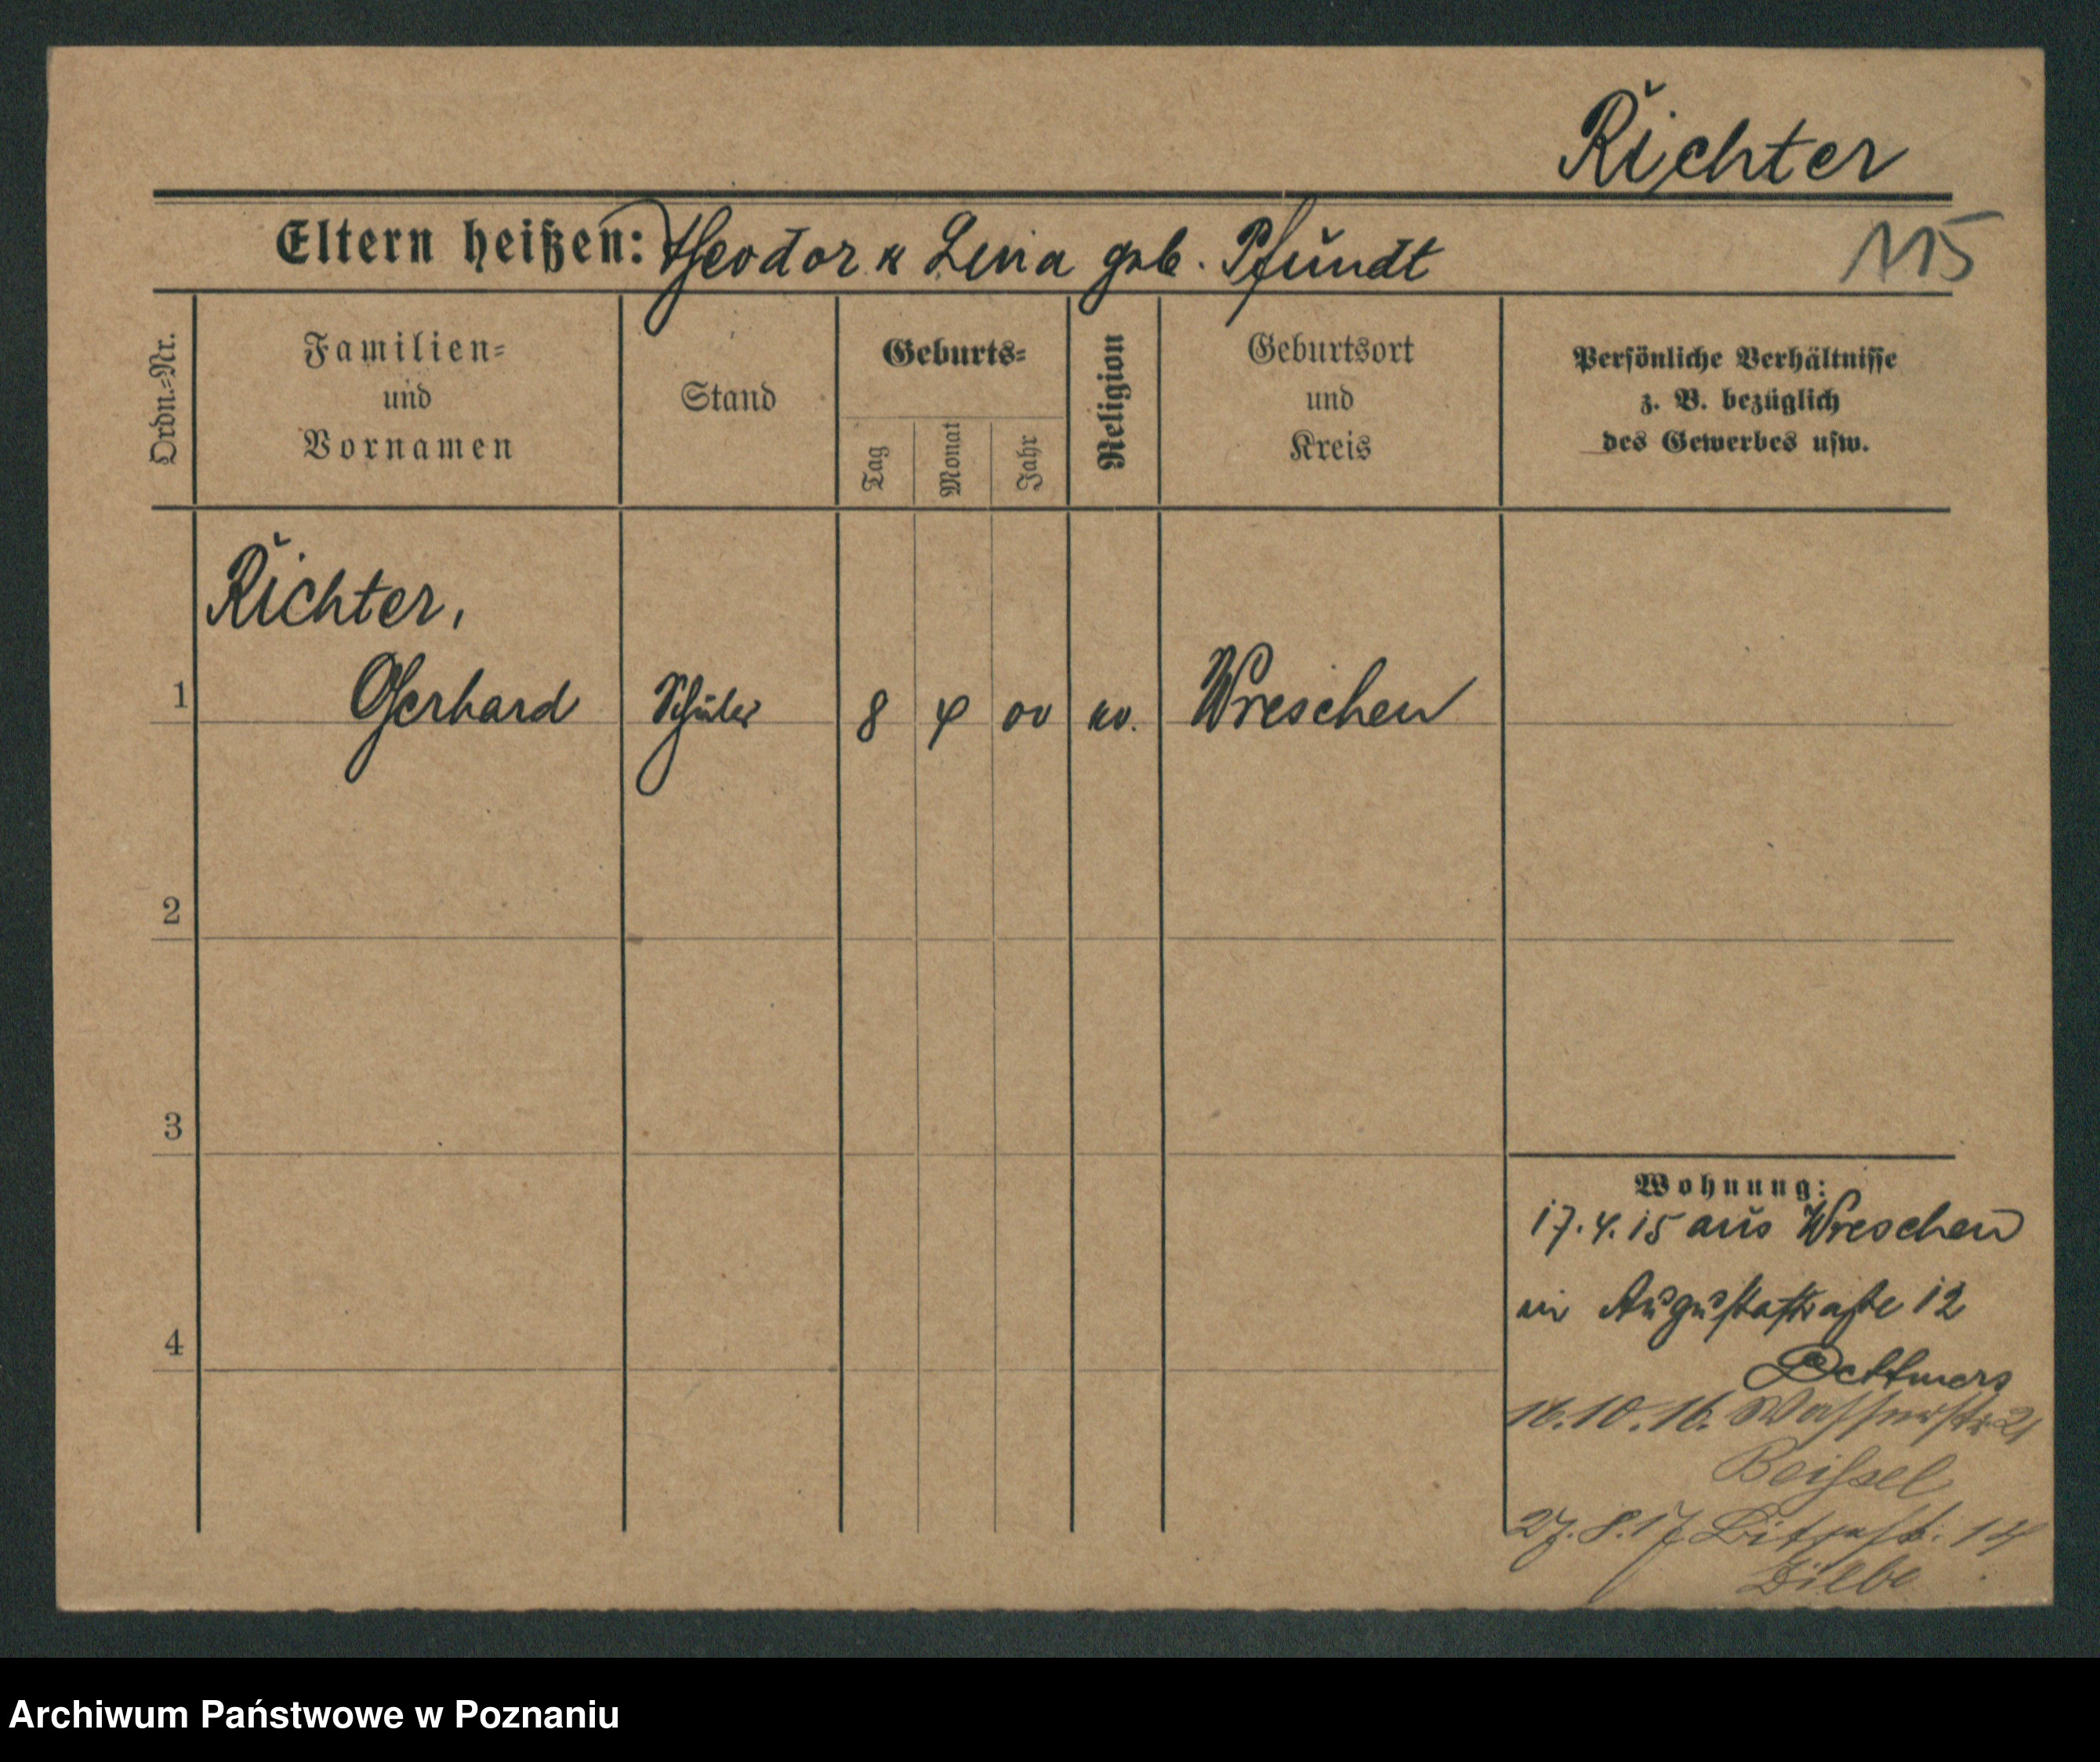 Richter
Eltern heißen: Theodor u Lena geb. Pfundt
115
Ordn.-Nr.
Familien- und Vornamen
Stand
Geburts-
Tag
Monat
Jahr
Religion
Geburtsort und Kreis
Persönliche Verhältnisse
z. B. bezüglich
des Gewerbes usw.
Richter,
1 Gerhard Schüler 8 4 00 ev. Wreschen
2
3
4
Wohnung:
17.4.15 aus Wreschen
in Augustastraße 12
Dettmers
16.10.16. Wasserstr. 21
Beissel
27.8.17 14
Archiwum Państwowe w Poznaniu